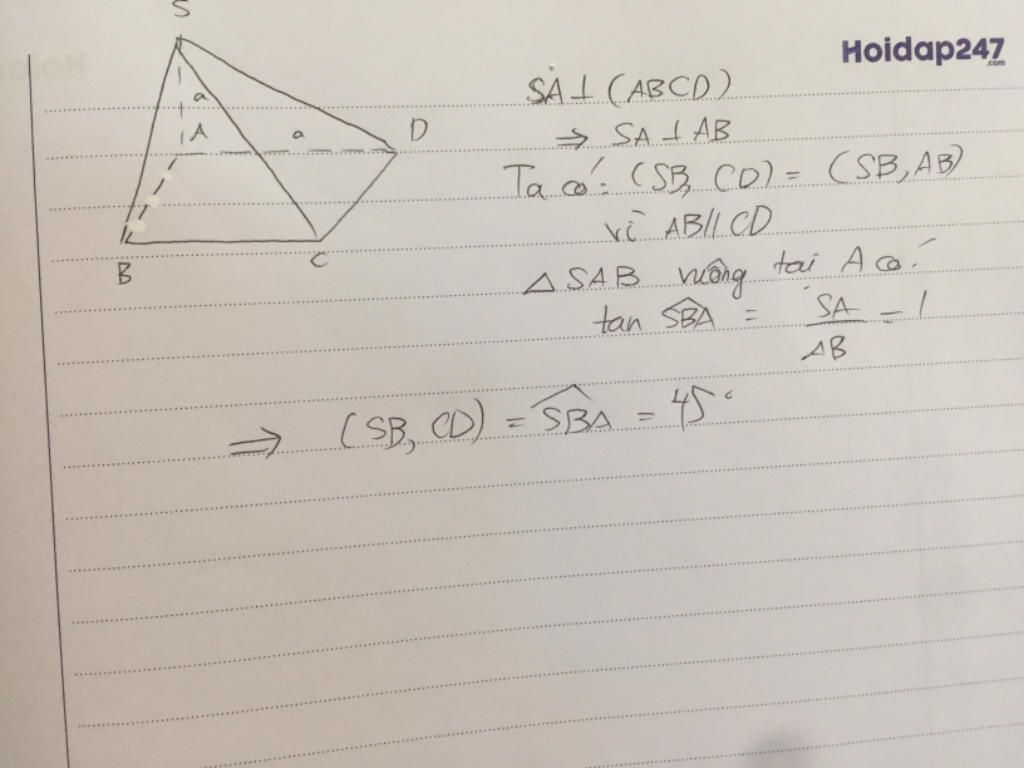 S
Hoidap247
.com
SA ⊥ (ABCD)
a
⇒ SA ⊥ AB
A a D
Ta có: (SB, CD) = (SB, AB)
vì AB // CD
B C
△SAB vuông tại A có:
tan SBA = SA/AB = 1
⇒ (SB, CD) = SBA = 45°